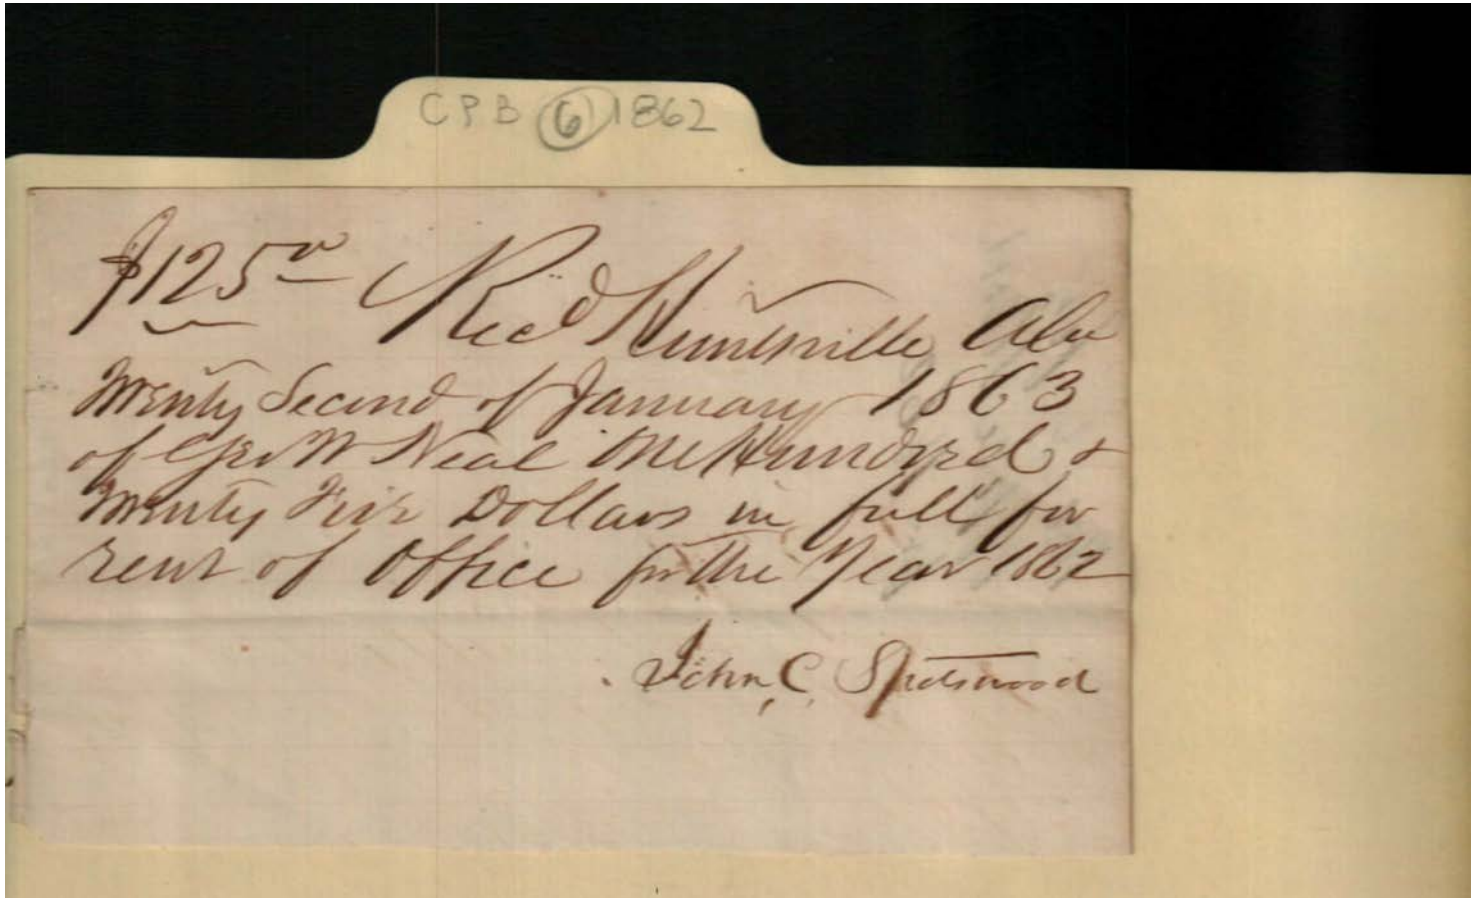 CPB 6 1862
$125 00 Recd Huntsville Ala
Twenty Second of January 1863
of Geo W Neal One Hundred &
Twenty Five Dollars in full for
rent of Office for the Year 1862
John C Spotswood